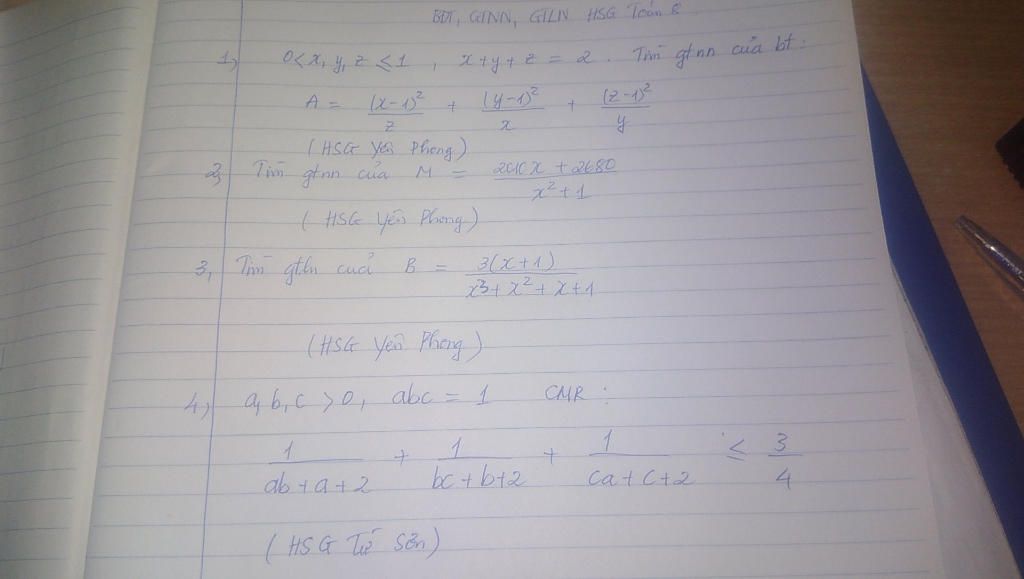 BĐT, GTNN, GTLN HSG Toán 8
1, 0 < x, y, z ≤ 1 , x + y + z = 2 . Tìm gtnn của bt :
A = (x-1)²/z + (y-1)²/x + (z-1)²/y
(HSG Yên Phong)
2, Tìm gtnn của M = (2010x + 2680)/(x² + 1)
(HSG Yên Phong)
3, Tìm gtln cuả B = 3(x+1)/(x³ + x² + x + 1)
(HSG Yên Phong)
4, a, b, c > 0, abc = 1 CMR :
1/(ab + a + 2) + 1/(bc + b + 2) + 1/(ca + c + 2) ≤ 3/4
(HSG Từ Sơn)